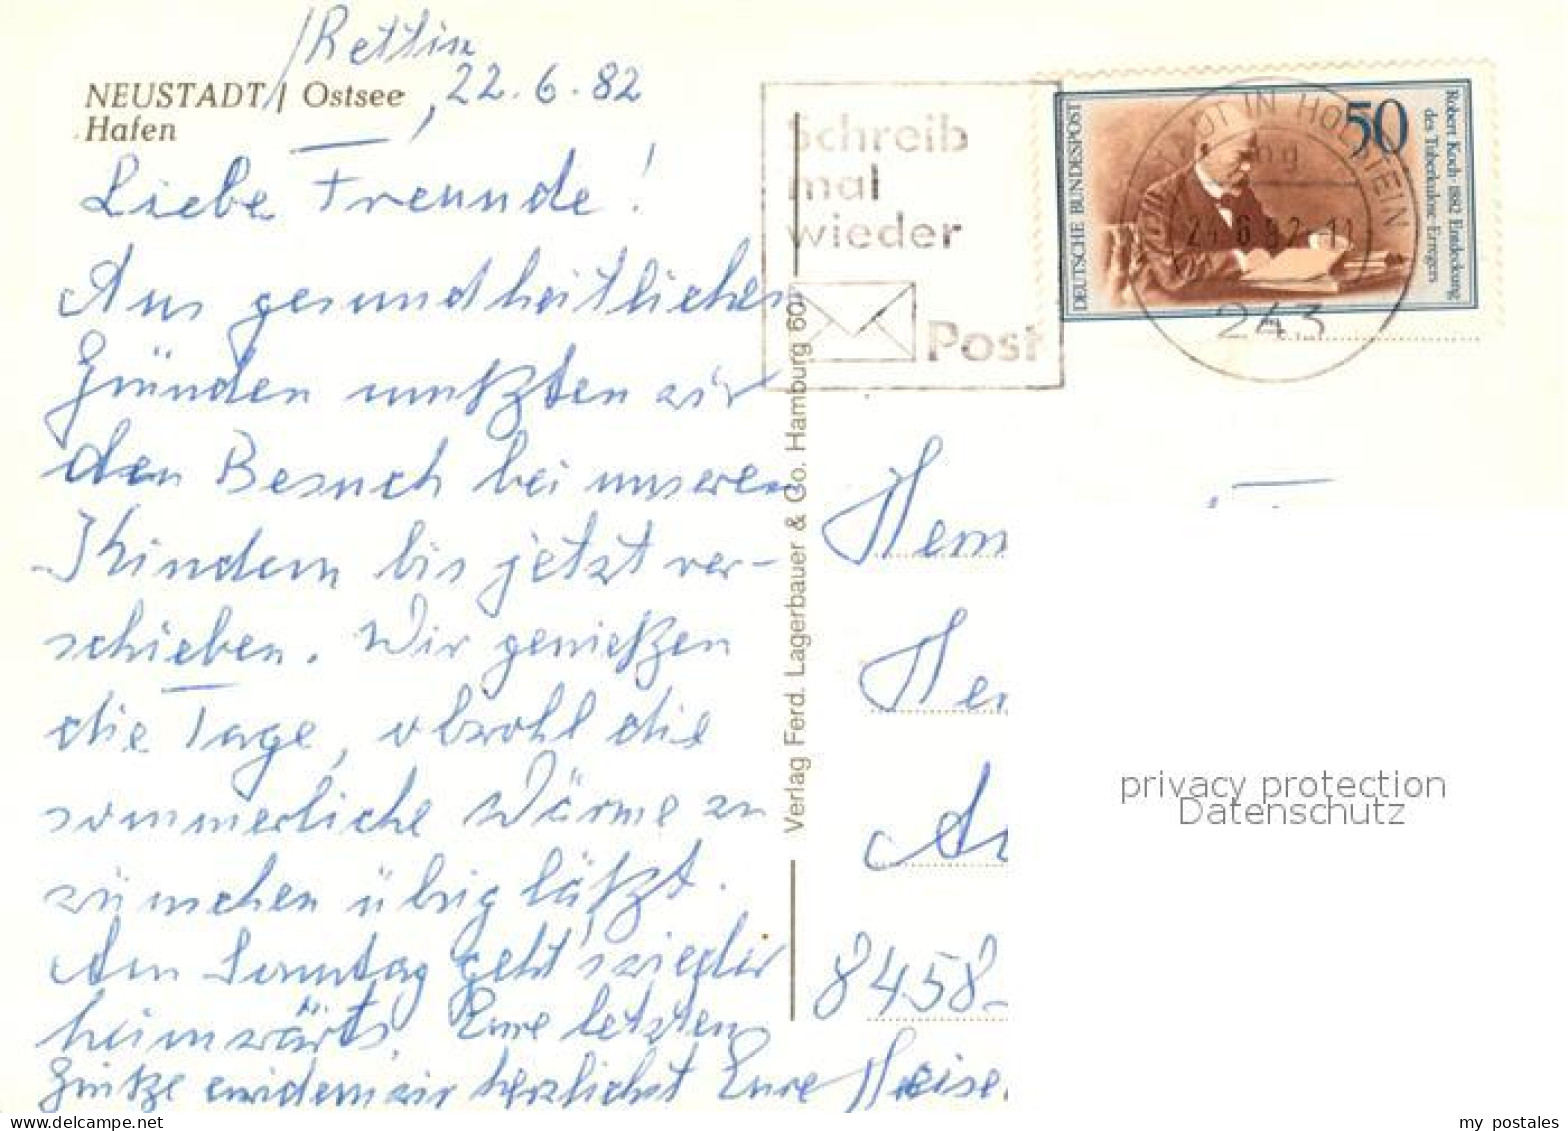 /Rettin
NEUSTADT / Ostsee, 22.6.82
Hafen
Liebe Freunde!
Aus gesundheitlichen
Gründen mußten wir
den Besuch bei unseren
Kindern bis jetzt ver-
schieben. Wir genießen
die Tage, obwohl die
sommerliche Wärme zu
wünschen übrig läßt.
Am Sonntag geht's wieder
heimwärts. Eure letzten
Grüße erwidern wir herzlichst Eure
Verlag Ferd. Lagerbauer & Co. Hamburg 60
Schreib
mal
wieder
Post
DEUTSCHE BUNDESPOST
50
Robert Koch · 1882 Entdeckung
des Tuberkulose-Erregers
IN HOLSTEIN
243
8458
privacy protection
Datenschutz
my_postales